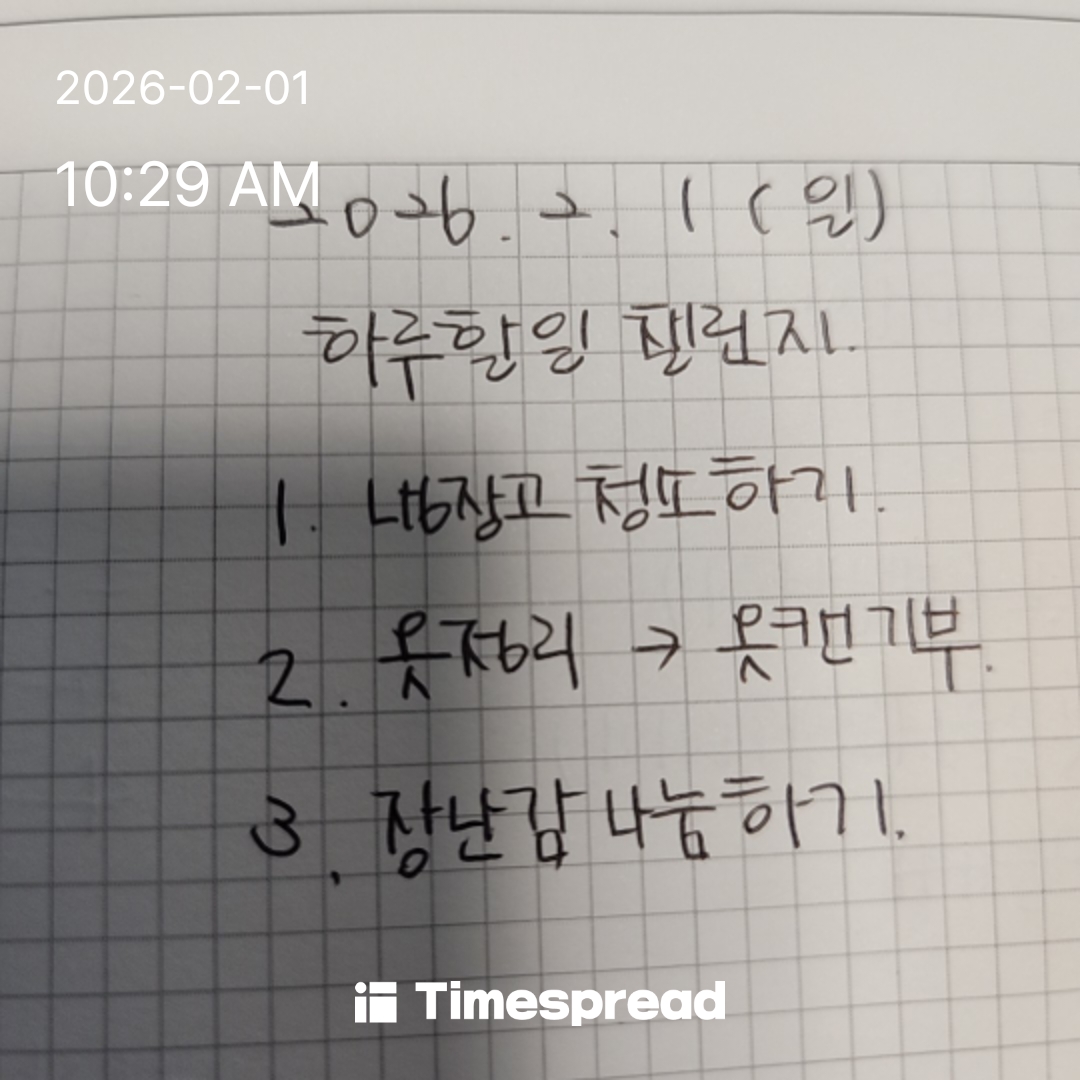 2026-02-01
10:29 AM
2026. 2. 1 (일)
하루할일 챌린지.
1. 냉장고 청소하기.
2. 옷정리 → 옷캔기부.
3. 장난감 나눔하기.
Timespread